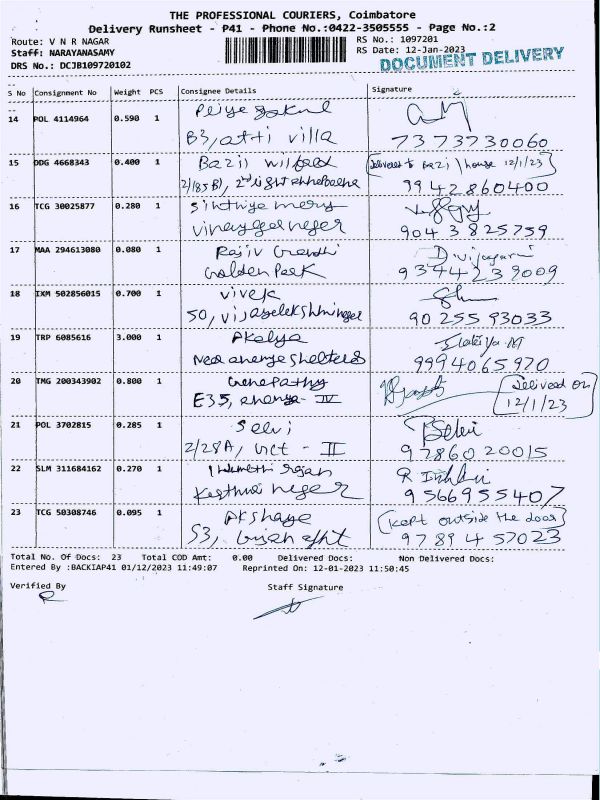 THE PROFESSIONAL COURIERS, Coimbatore
Delivery Runsheet - P41 - Phone No.:0422-3505555 - Page No.:2
Route: V N R NAGAR
RS No.: 1097201
Staff: NARAYANASAMY
RS Date: 12-Jan-2023
DRS No.: DCJB109720102
DOCUMENT DELIVERY
S No Consignment No Weight PCS Consignee Details Signature
14 POL 4114964 0.590 1
B3, atti villa 7373730060
15 DDG 4668343 0.400 1 Bazil wilfred Delivered to Bazil house 12/1/23
2/185B), 2nd 9942860400
16 TCG 30025877 0.280 1 Sinthiya mery
vinayager neger 9043825759
17 MAA 294613080 0.080 1 Rajiv Grandhi
Golden Park 9344239009
18 IXM 502856015 0.700 1 vivek
50, vijayelekshmineger 9025593033
19 TRP 6085616 3.000 1 Akalya
Near ananya shelters 9994065970
20 TMG 200343902 0.800 1 Genepathy Delived on
E35, ananya - IV 12/1/23
21 POL 3702815 0.285 1 Selvi Selvi
2/28A, vict - II 9786020015
22 SLM 311684162 0.270 1 rajan
Kasthuri neger 9566955407
23 TCG 50308746 0.095 1 Akshaya (kept outside the door)
S3, 9789457023
Total No. Of Docs: 23 Total COD Amt: 0.00 Delivered Docs: Non Delivered Docs:
Entered By :BACKIAP41 01/12/2023 11:49:07 Reprinted On: 12-01-2023 11:50:45
Verified By Staff Signature